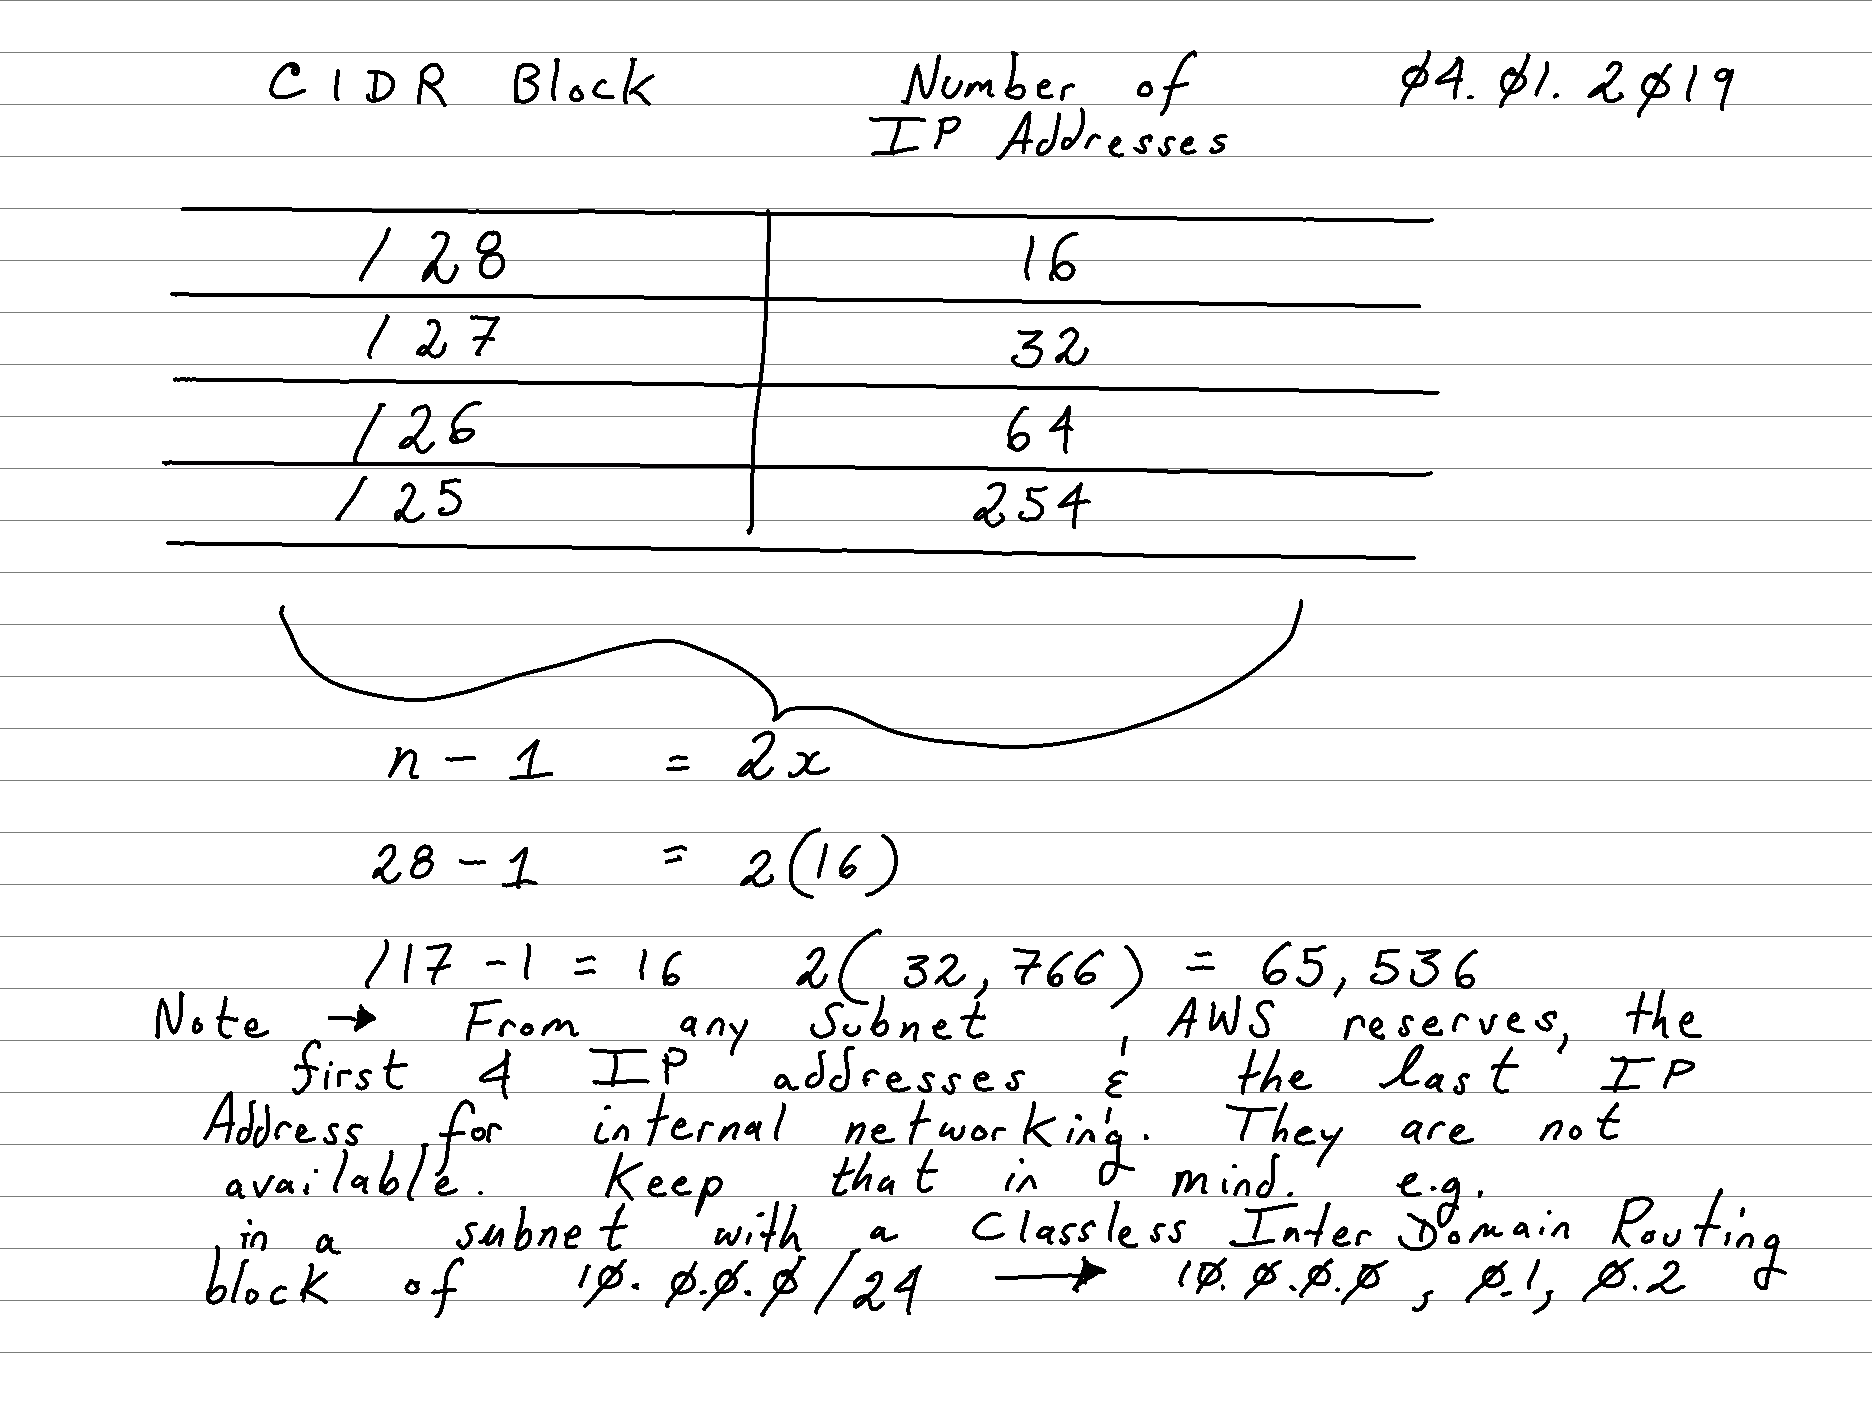 CIDR Block Number of 04.01.2019
IP Addresses
/28 16
/27 32
/26 64
/25 254
n - 1 = 2x
28 - 1 = 2(16)
/17 - 1 = 16 2(32,766) = 65,536
Note → From any Subnet, AWS reserves, the
first 4 IP addresses & the last IP
Address for internal networking. They are not
available. Keep that in mind. e.g.
in a subnet with a Classless Inter Domain Routing
block of 10.0.0.0/24 → 10.0.0.0, 0.1, 0.2